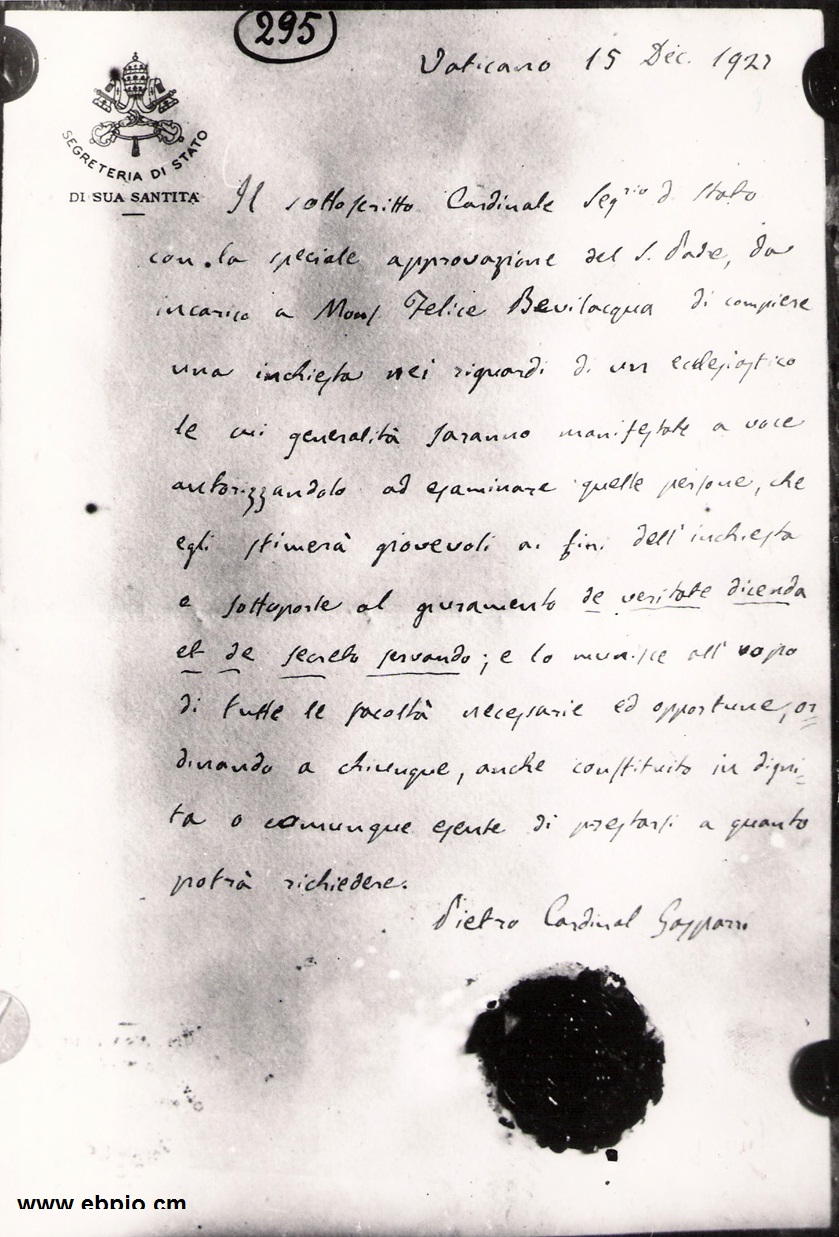 295
Vaticano 15 Dec. 1927
SEGRETERIA DI STATO
DI SUA SANTITA
Il sottoscritto Cardinale Segrio d. Stato
con la speciale approvazione del S. Padre, da
incarico a Mons Felice Bevilacqua di compiere
una inchiesta nei riguardi di un ecclesiastico
le cui generalità saranno manifestate a voce
autorizzandolo ad esaminare quelle persone, che
egli stimerà giovevoli ai fini dell'inchiesta
e sottoporle al giuramento de veritate dicenda
et de secreto servando; e lo munisce all'uopo
di tutte le facoltà necessarie ed opportune, or
dinando a chiunque, anche constituito in digni-
ta o comunque esente di prestarsi a quanto
potrà richiedere.
Pietro Cardinal Gasparri
www.ebpio.cm